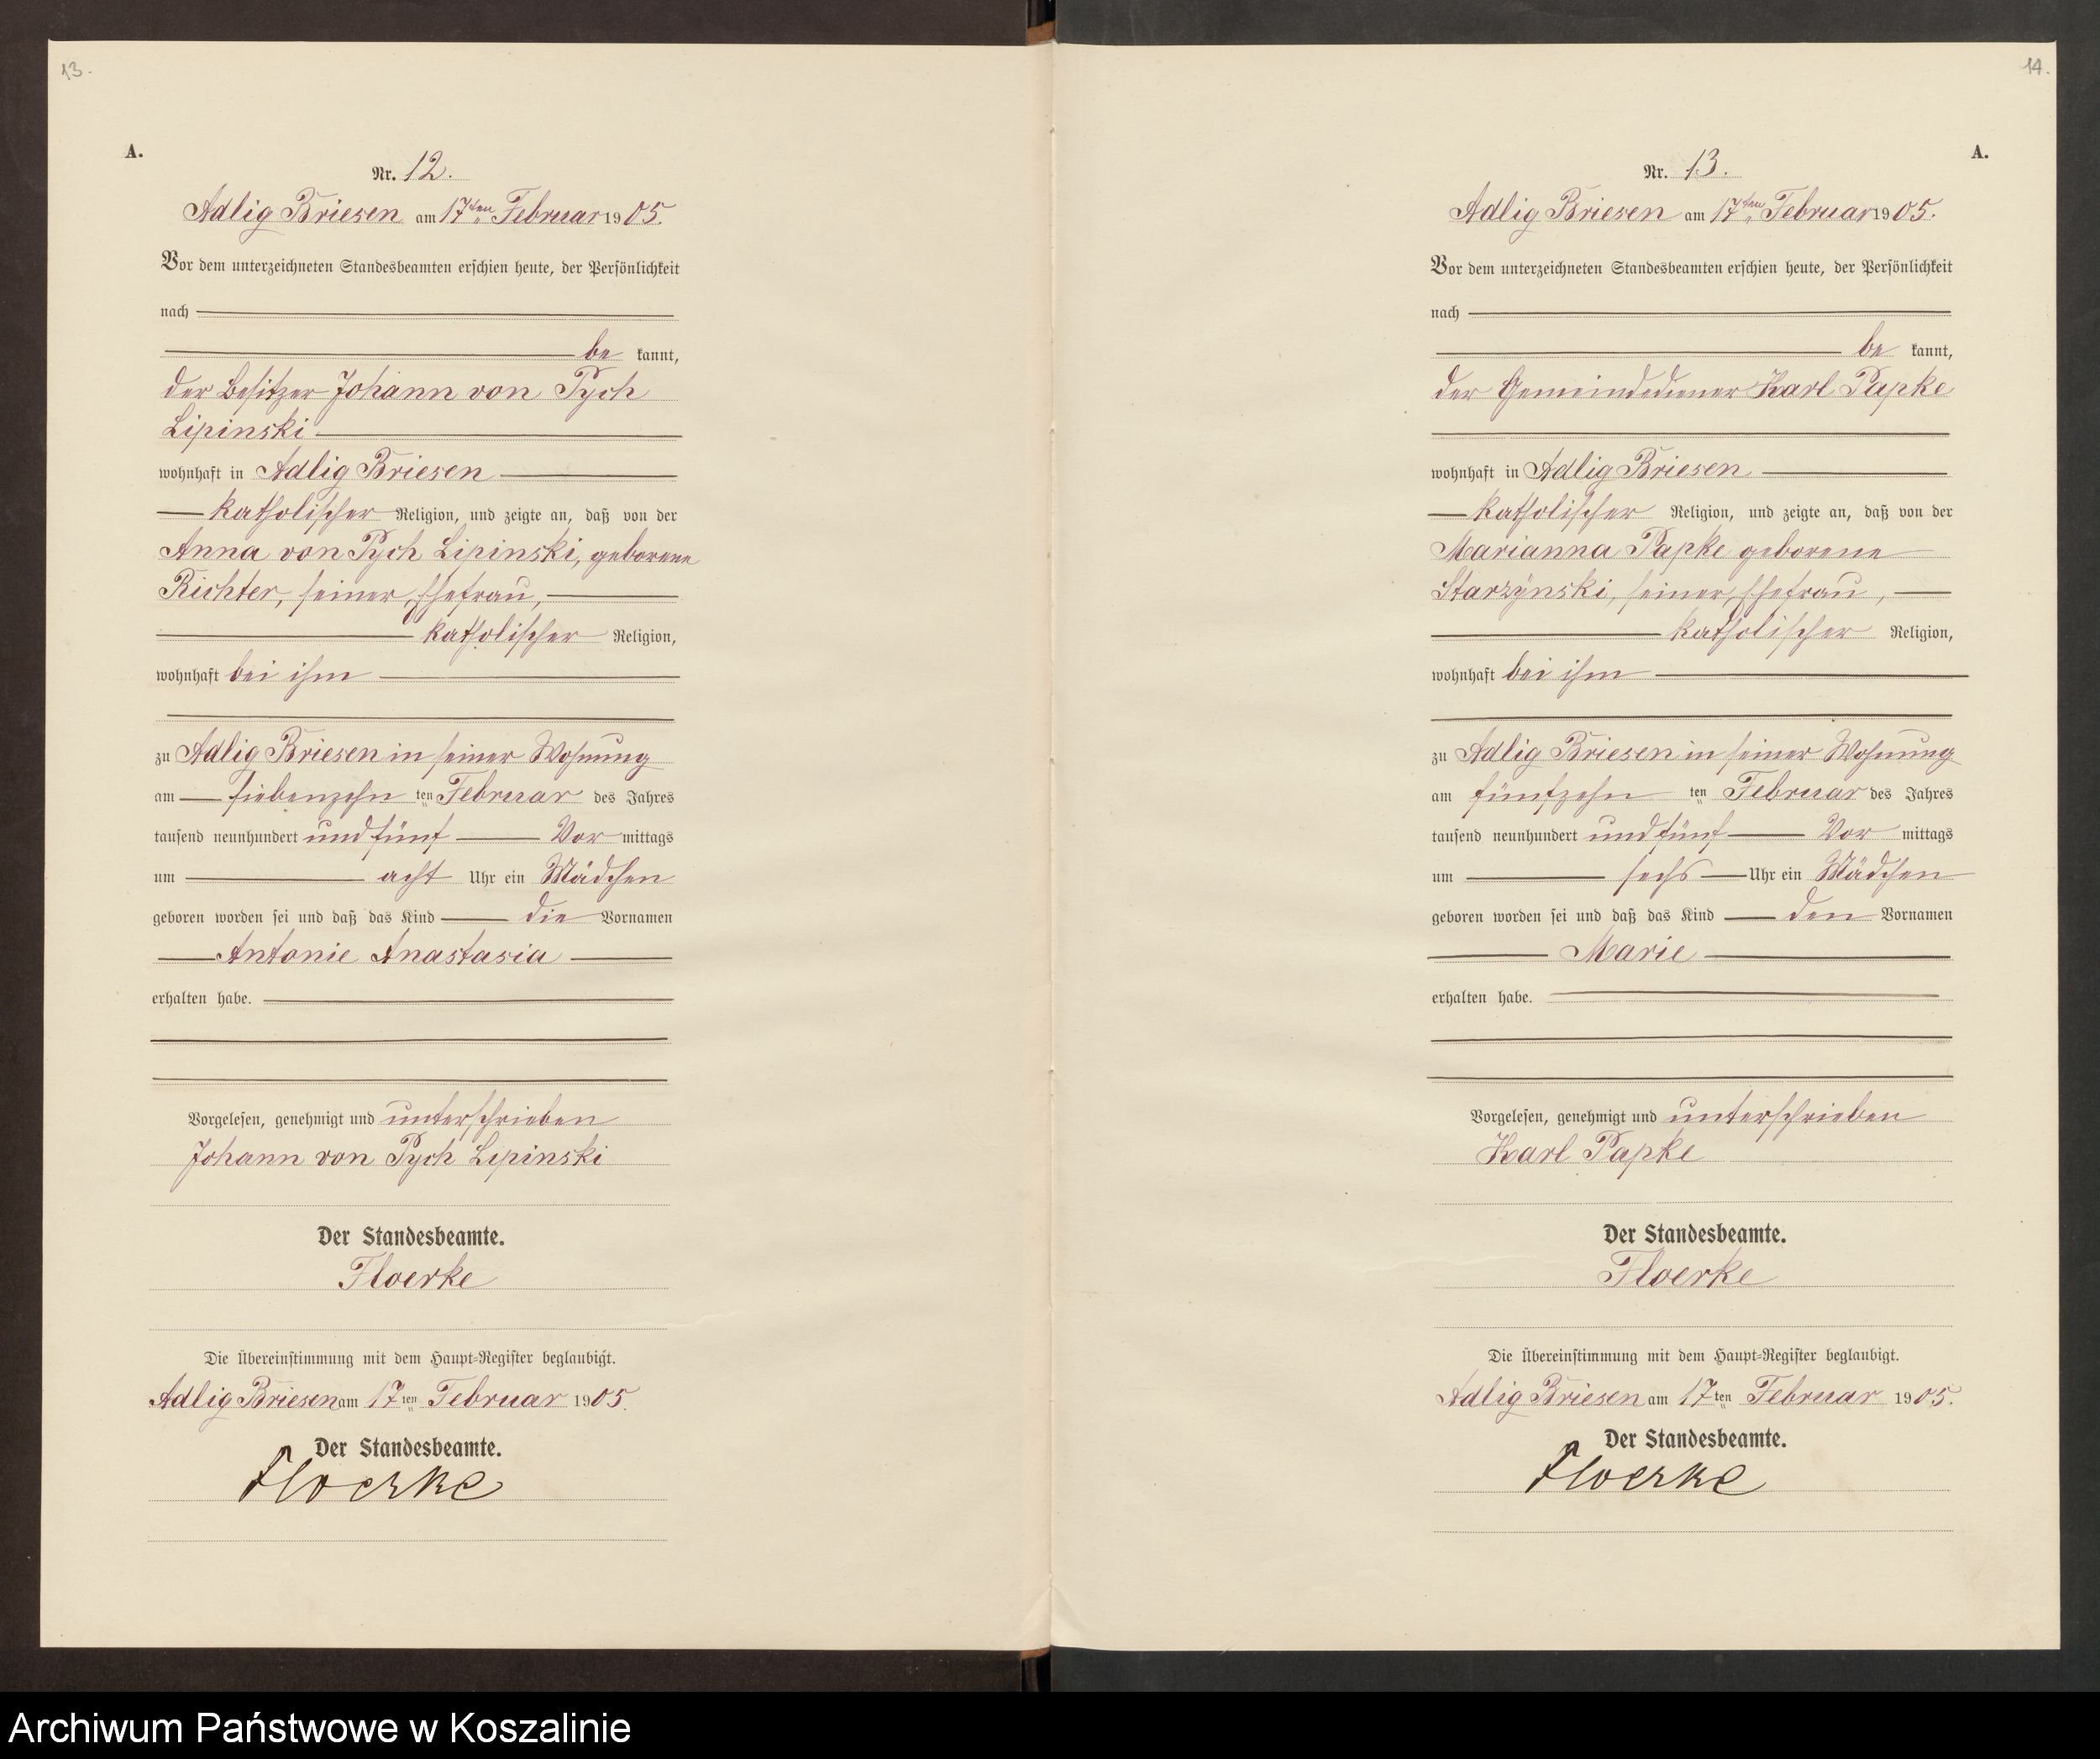 13.
A.
Nr. 12.
Adlig Briesen am 17ten Februar 1905.
Vor dem unterzeichneten Standesbeamten erschien heute, der Persönlichkeit
nach
be kannt,
der Besitzer Johann von Pych
Lipinski
wohnhaft in Adlig Briesen
katholischer Religion, und zeigte an, daß von der
Anna von Pych Lipinski, geborene
Richter, seiner Ehefrau,
katholischer Religion,
wohnhaft bei ihm
zu Adlig Briesen in seiner Wohnung
am siebenzehn ten Februar des Jahres
tausend neunhundert und fünf Vor mittags
um acht Uhr ein Mädchen
geboren worden sei und daß das Kind die Vornamen
Antonie Anastasia
erhalten habe.
Vorgelesen, genehmigt und unterschrieben
Johann von Pych Lipinski
Der Standesbeamte.
Floerke
Die Übereinstimmung mit dem Haupt-Register beglaubigt.
Adlig Briesen am 17ten Februar 1905.
Der Standesbeamte.
Floerke
14.
A.
Nr. 13.
Adlig Briesen am 17ten Februar 1905.
Vor dem unterzeichneten Standesbeamten erschien heute, der Persönlichkeit
nach
be kannt,
der Gemeindediener Karl Papke
wohnhaft in Adlig Briesen
katholischer Religion, und zeigte an, daß von der
Marianna Papke geborene
Starzynski, seiner Ehefrau,
katholischer Religion,
wohnhaft bei ihm
zu Adlig Briesen in seiner Wohnung
am fünfzehn ten Februar des Jahres
tausend neunhundert und fünf Vor mittags
um sechs Uhr ein Mädchen
geboren worden sei und daß das Kind den Vornamen
Marie
erhalten habe.
Vorgelesen, genehmigt und unterschrieben
Karl Papke
Der Standesbeamte.
Floerke
Die Übereinstimmung mit dem Haupt-Register beglaubigt.
Adlig Briesen am 17ten Februar 1905.
Der Standesbeamte.
Floerke
Archiwum Państwowe w Koszalinie